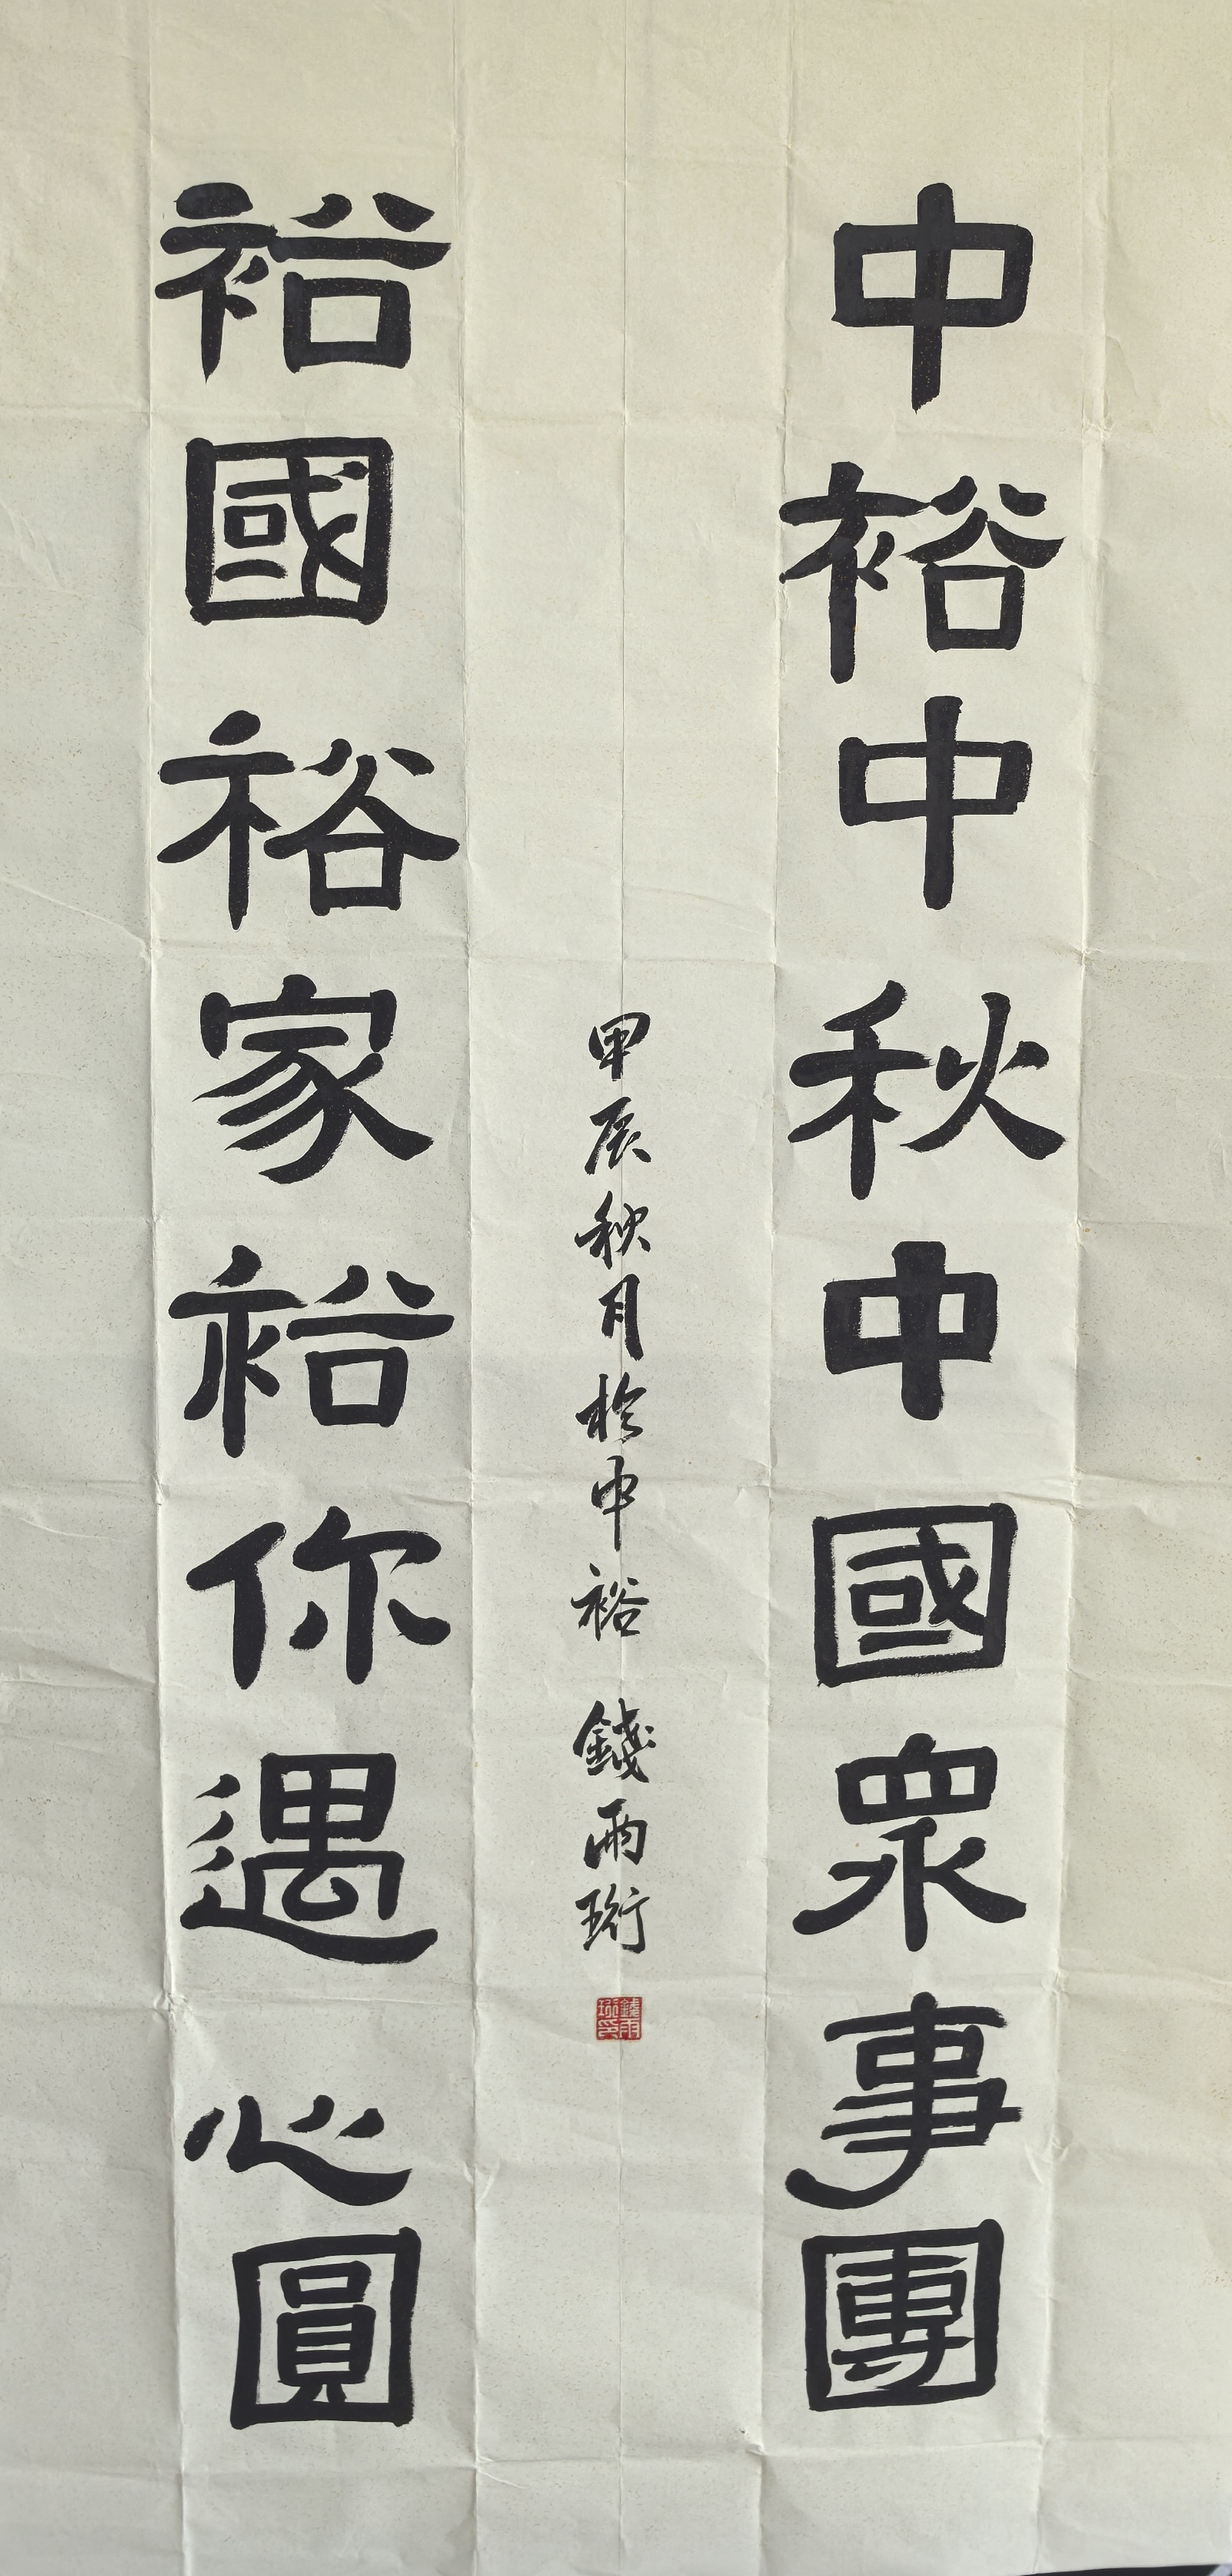 中裕中秋中國眾事團
裕國裕家裕你遇心圓
甲辰秋月於中裕 錢雨珩
錢雨珩印